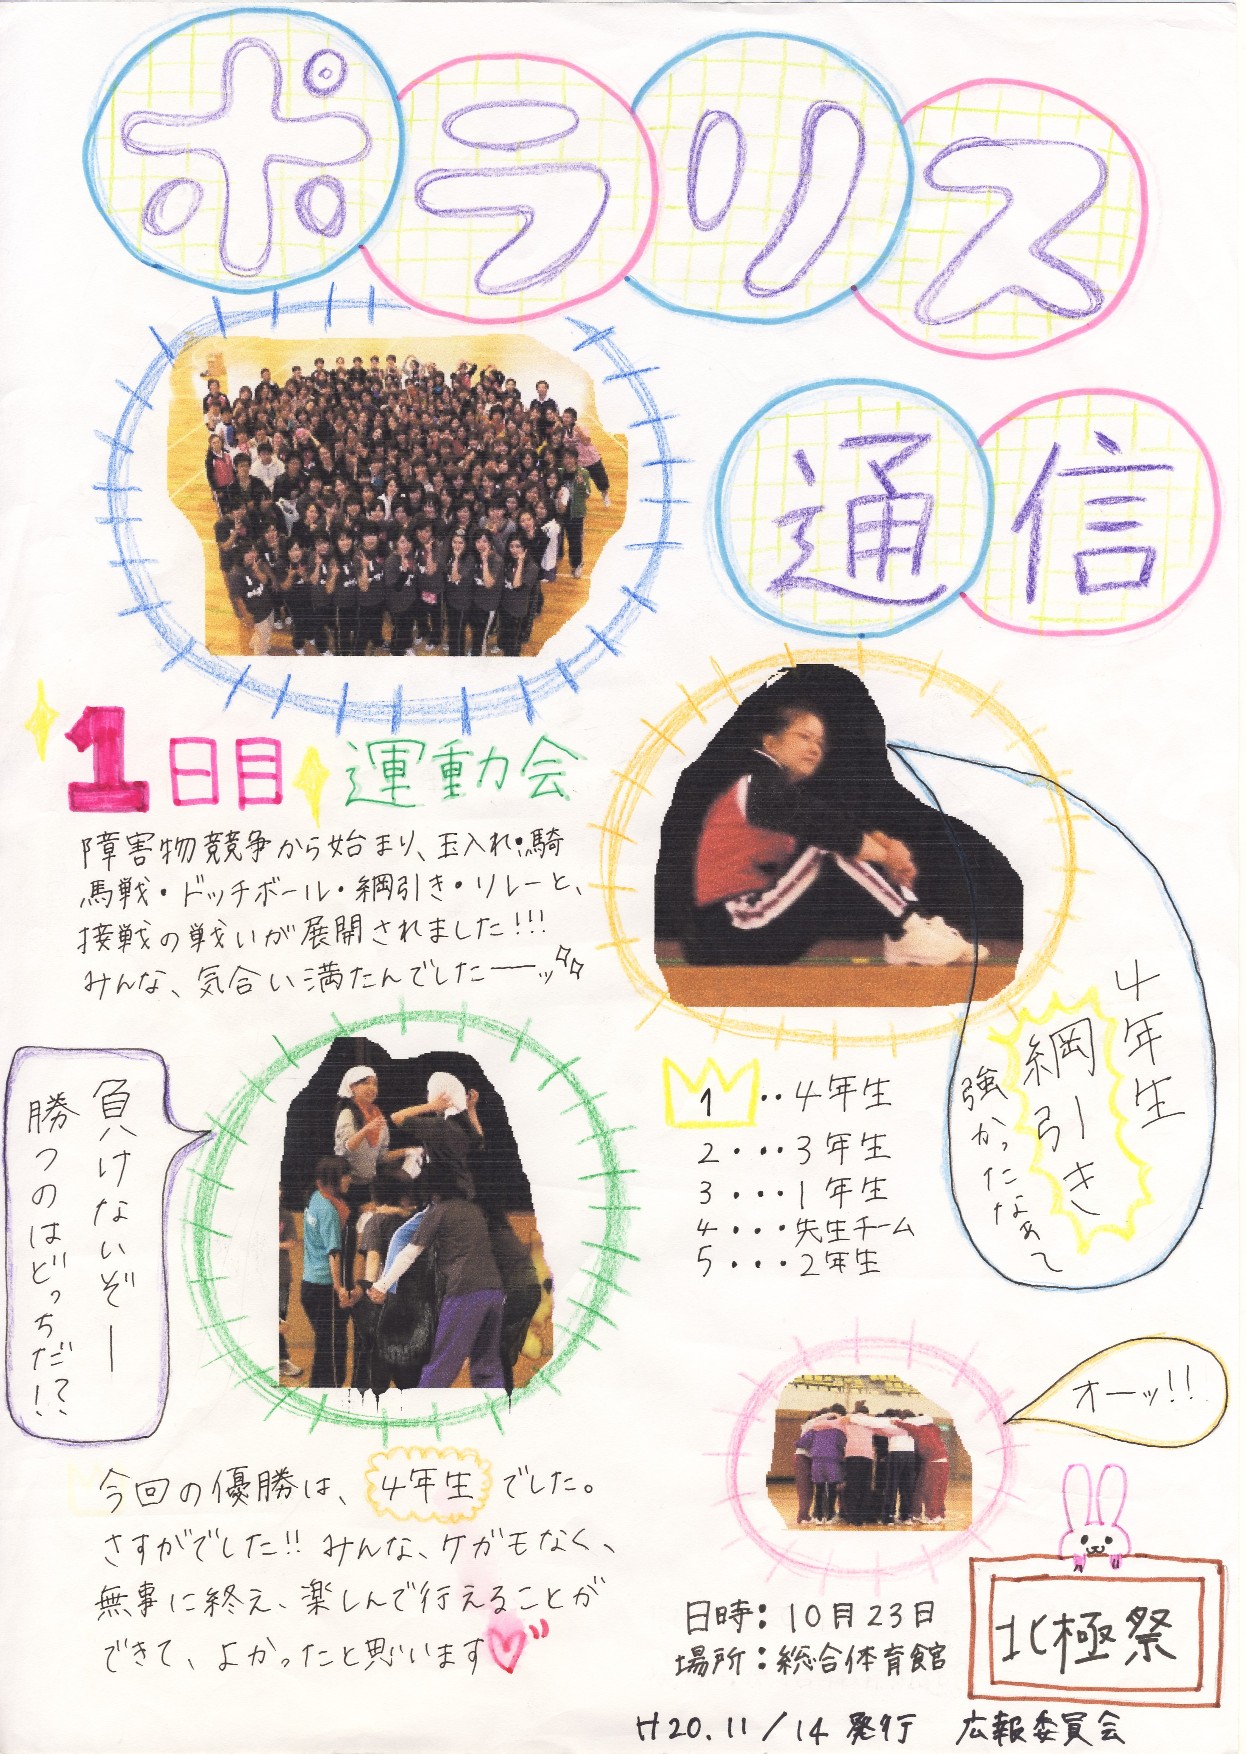 ポラリス
通信
1日目 運動会
障害物競争から始まり、玉入れ・騎
馬戦・ドッチボール・綱引き・リレーと、
接戦の戦いが展開されました!!!
みんな、気合い満たんでしたーーッ
4年生
綱引き
強かったなぁて
負けないぞー
勝つのはどっちだ!?
1・・4年生
2・・・3年生
3・・・1年生
4・・・先生チーム
5・・・2年生
オーッ!!
今回の優勝は、4年生でした。
さすがでした!! みんな、ケガもなく、
無事に終え、楽しんで行えることが
できて、よかったと思います
日時:10月23日
場所:総合体育館
北極祭
H20.11/14発行 広報委員会